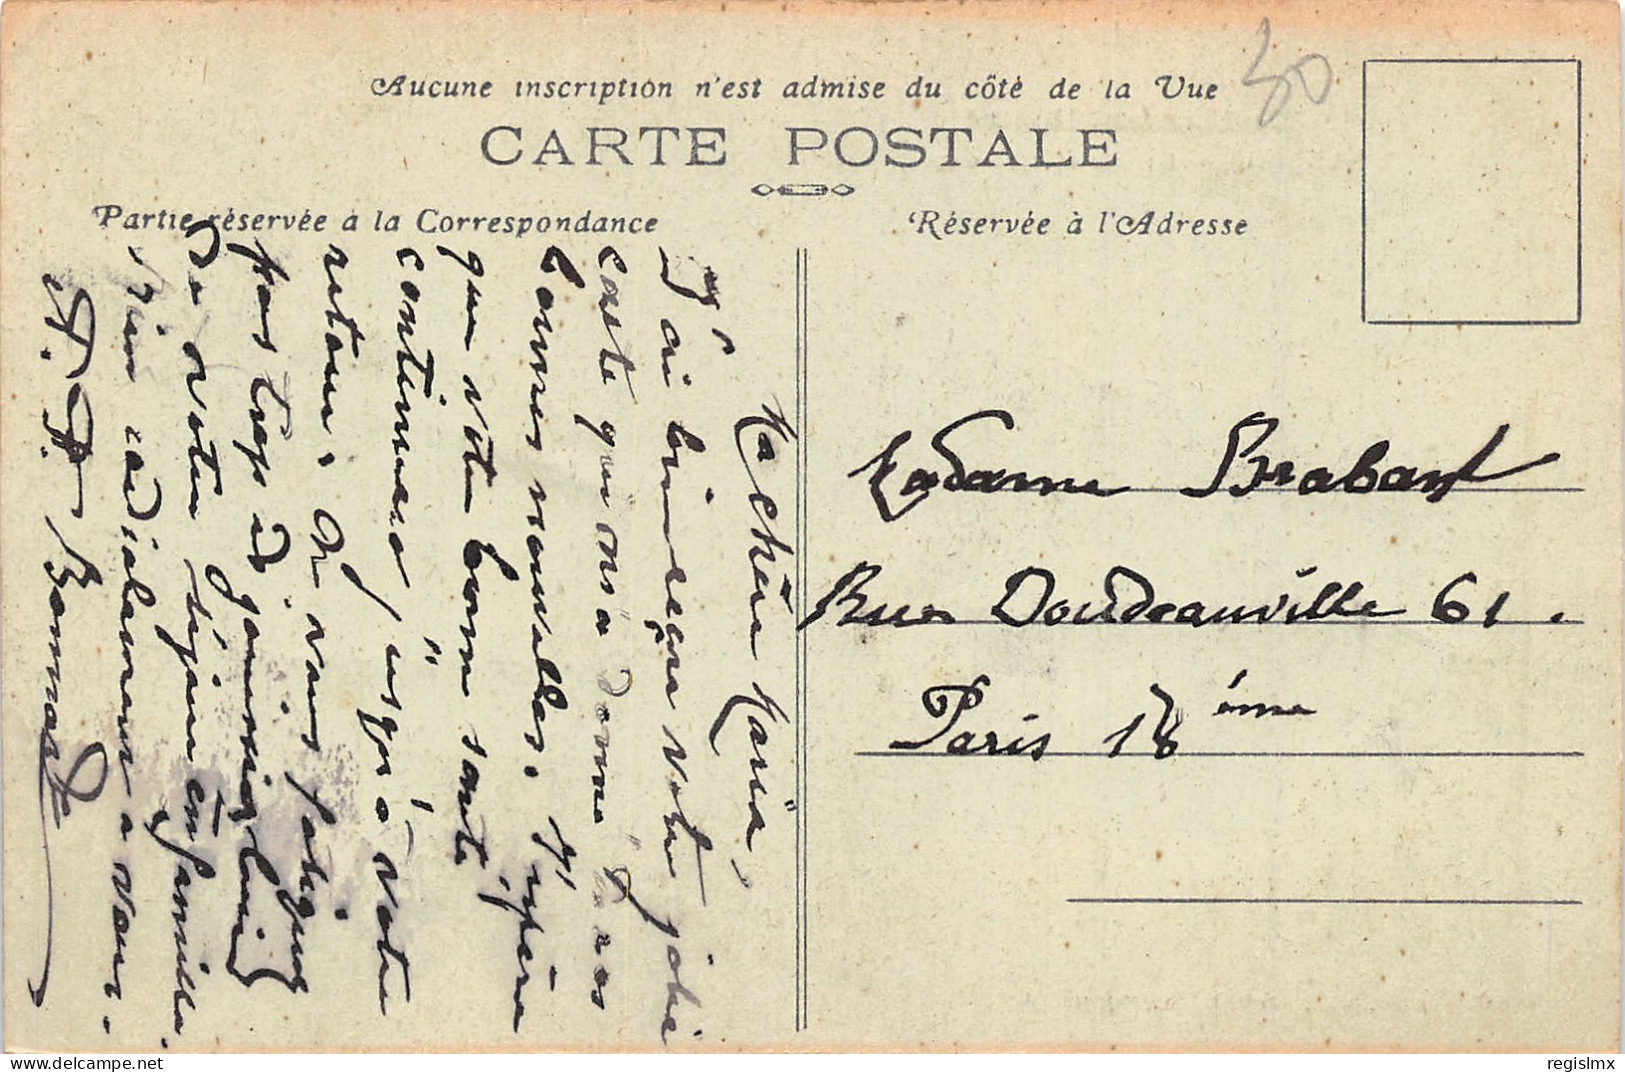 Aucune inscription n'est admise du côté de la Vue
50
CARTE POSTALE
Partie réservée à la Correspondance
Réservée à l'Adresse
Ma chère Maria,
J'ai bien reçu votre jolie
carte qui m'a donné de vos
bonnes nouvelles. J'espère
que votre bonne santé
continuera jusqu'à votre
retour. Ne vous fatiguez
pas trop et jouissez bien
de votre séjour en famille.
Bien cordialement à vous.
Madame Brabant
Rue Doudeauville 61.
Paris 18ème
regislmx
delcampe.net